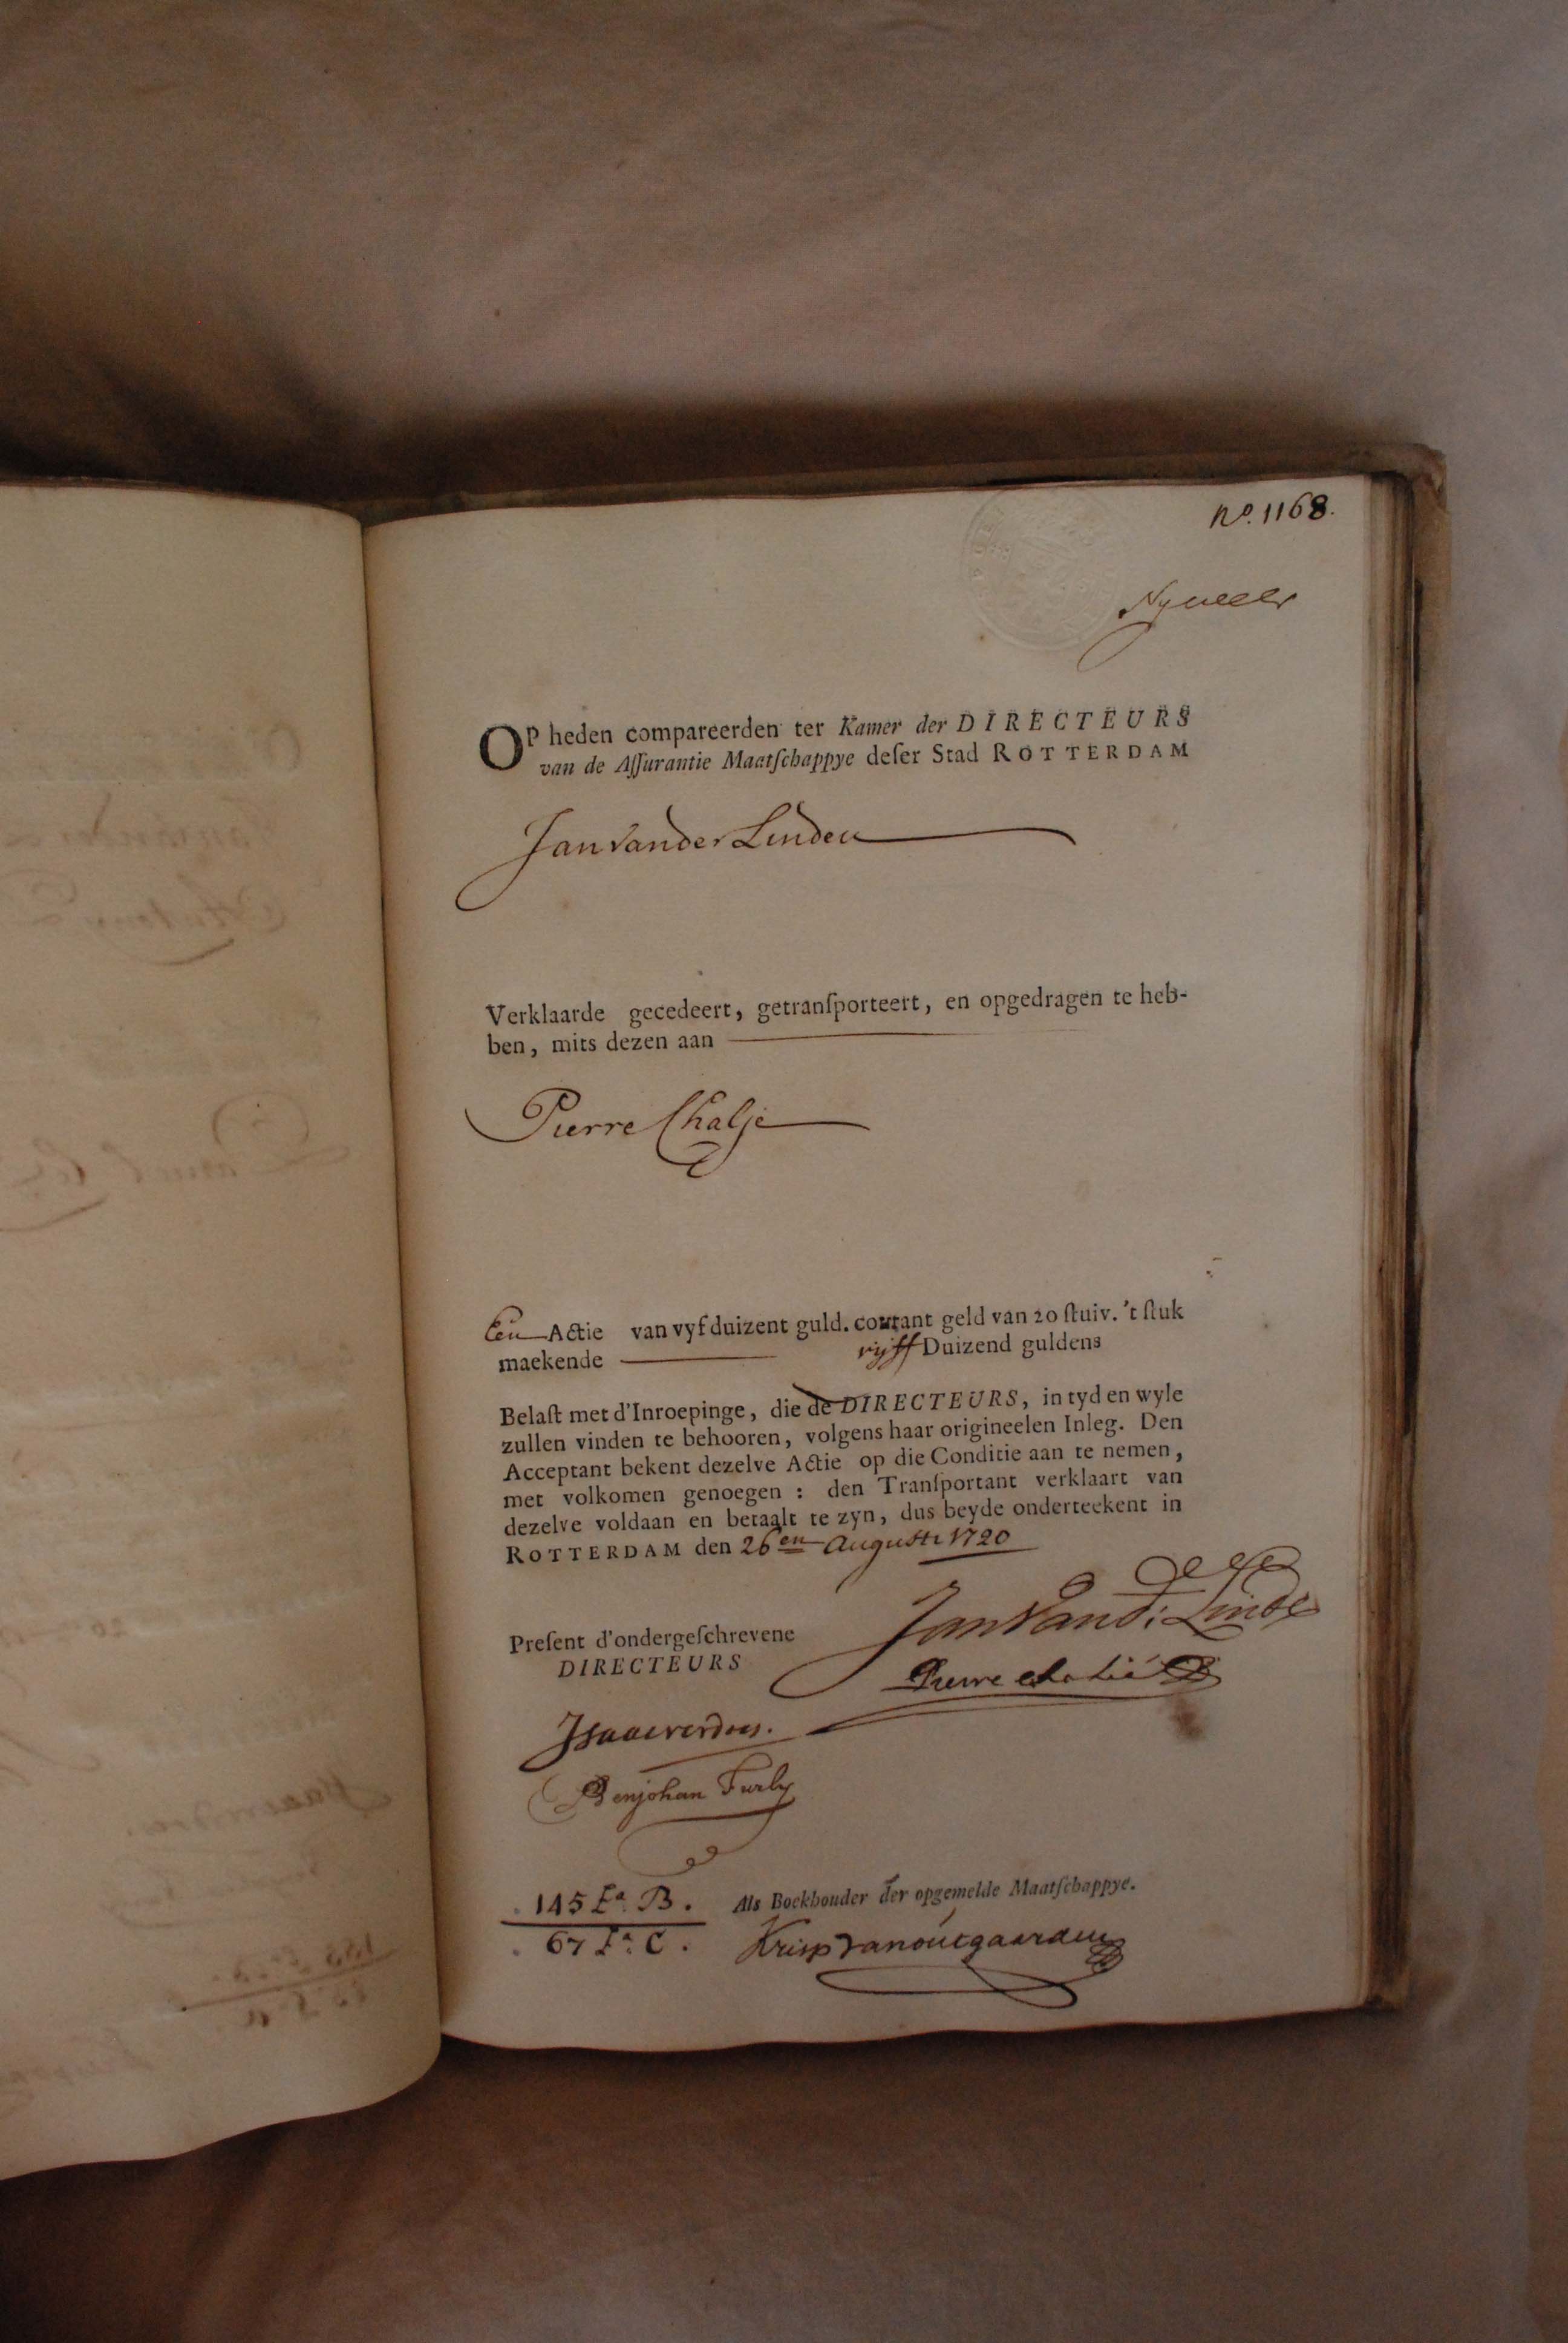 No. 1168.
OP heden compareerden ter Kamer der DIRECTEURS
van de Aſſurantie Maatſchappye deſer Stad ROTTERDAM
Jan vander Linden
Verklaarde gecedeert, getranſporteert, en opgedragen te heb-
ben, mits dezen aan
Pierre Chalje
Een Actie van vyf duizent guld. contant geld van 20 ſtuiv. 't ſtuk
maekende vijff Duizend guldens
Belaſt met d'Inroepinge, die de DIRECTEURS, in tyd en wyle
zullen vinden te behooren, volgens haar origineelen Inleg. Den
Acceptant bekent dezelve Actie op die Conditie aan te nemen,
met volkomen genoegen : den Tranſportant verklaart van
dezelve voldaan en betaalt te zyn, dus beyde onderteekent in
ROTTERDAM den 26en Augusti 1720
Jan Vand: Linde
Preſent d'ondergeſchrevene
DIRECTEURS
Pierre
Benjohan Furly
145 La. B.
67 La. C.
Als Boekhouder der opgemelde Maatſchappye.